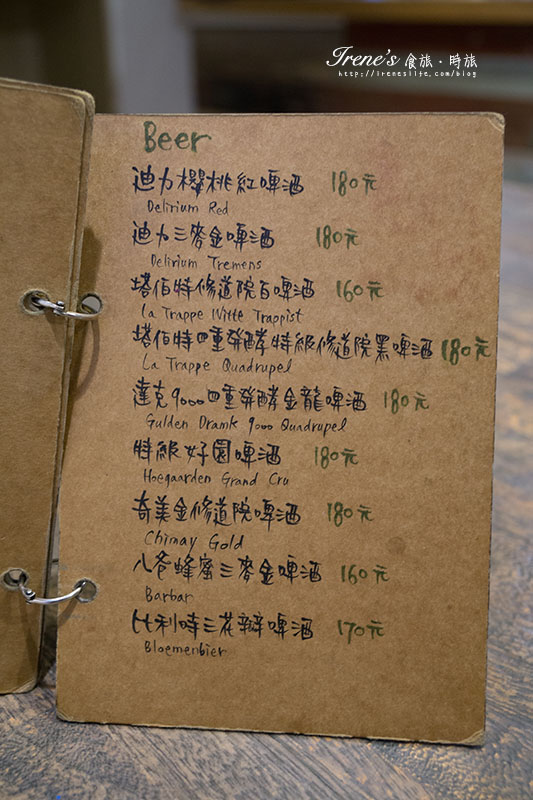 Irene's 食旅．時旅
http://ireneslife.com/blog
Beer
迪力櫻桃紅啤酒 180元
Delirium Red
迪力三麥金啤酒 180元
Delirium Tremens
塔伯特修道院白啤酒 160元
La Trappe Witte Trappist
塔伯特四重發酵特級修道院黑啤酒 180元
La Trappe Quadrupel
達克9000四重發酵金龍啤酒 180元
Gulden Dramk 9000 Quadrupel
特級好園啤酒 180元
Hoegaarden Grand Cru
奇美金修道院啤酒 180元
Chimay Gold
八爸蜂蜜三麥金啤酒 160元
Barbar
比利時三花瓣啤酒 170元
Bloemenbier